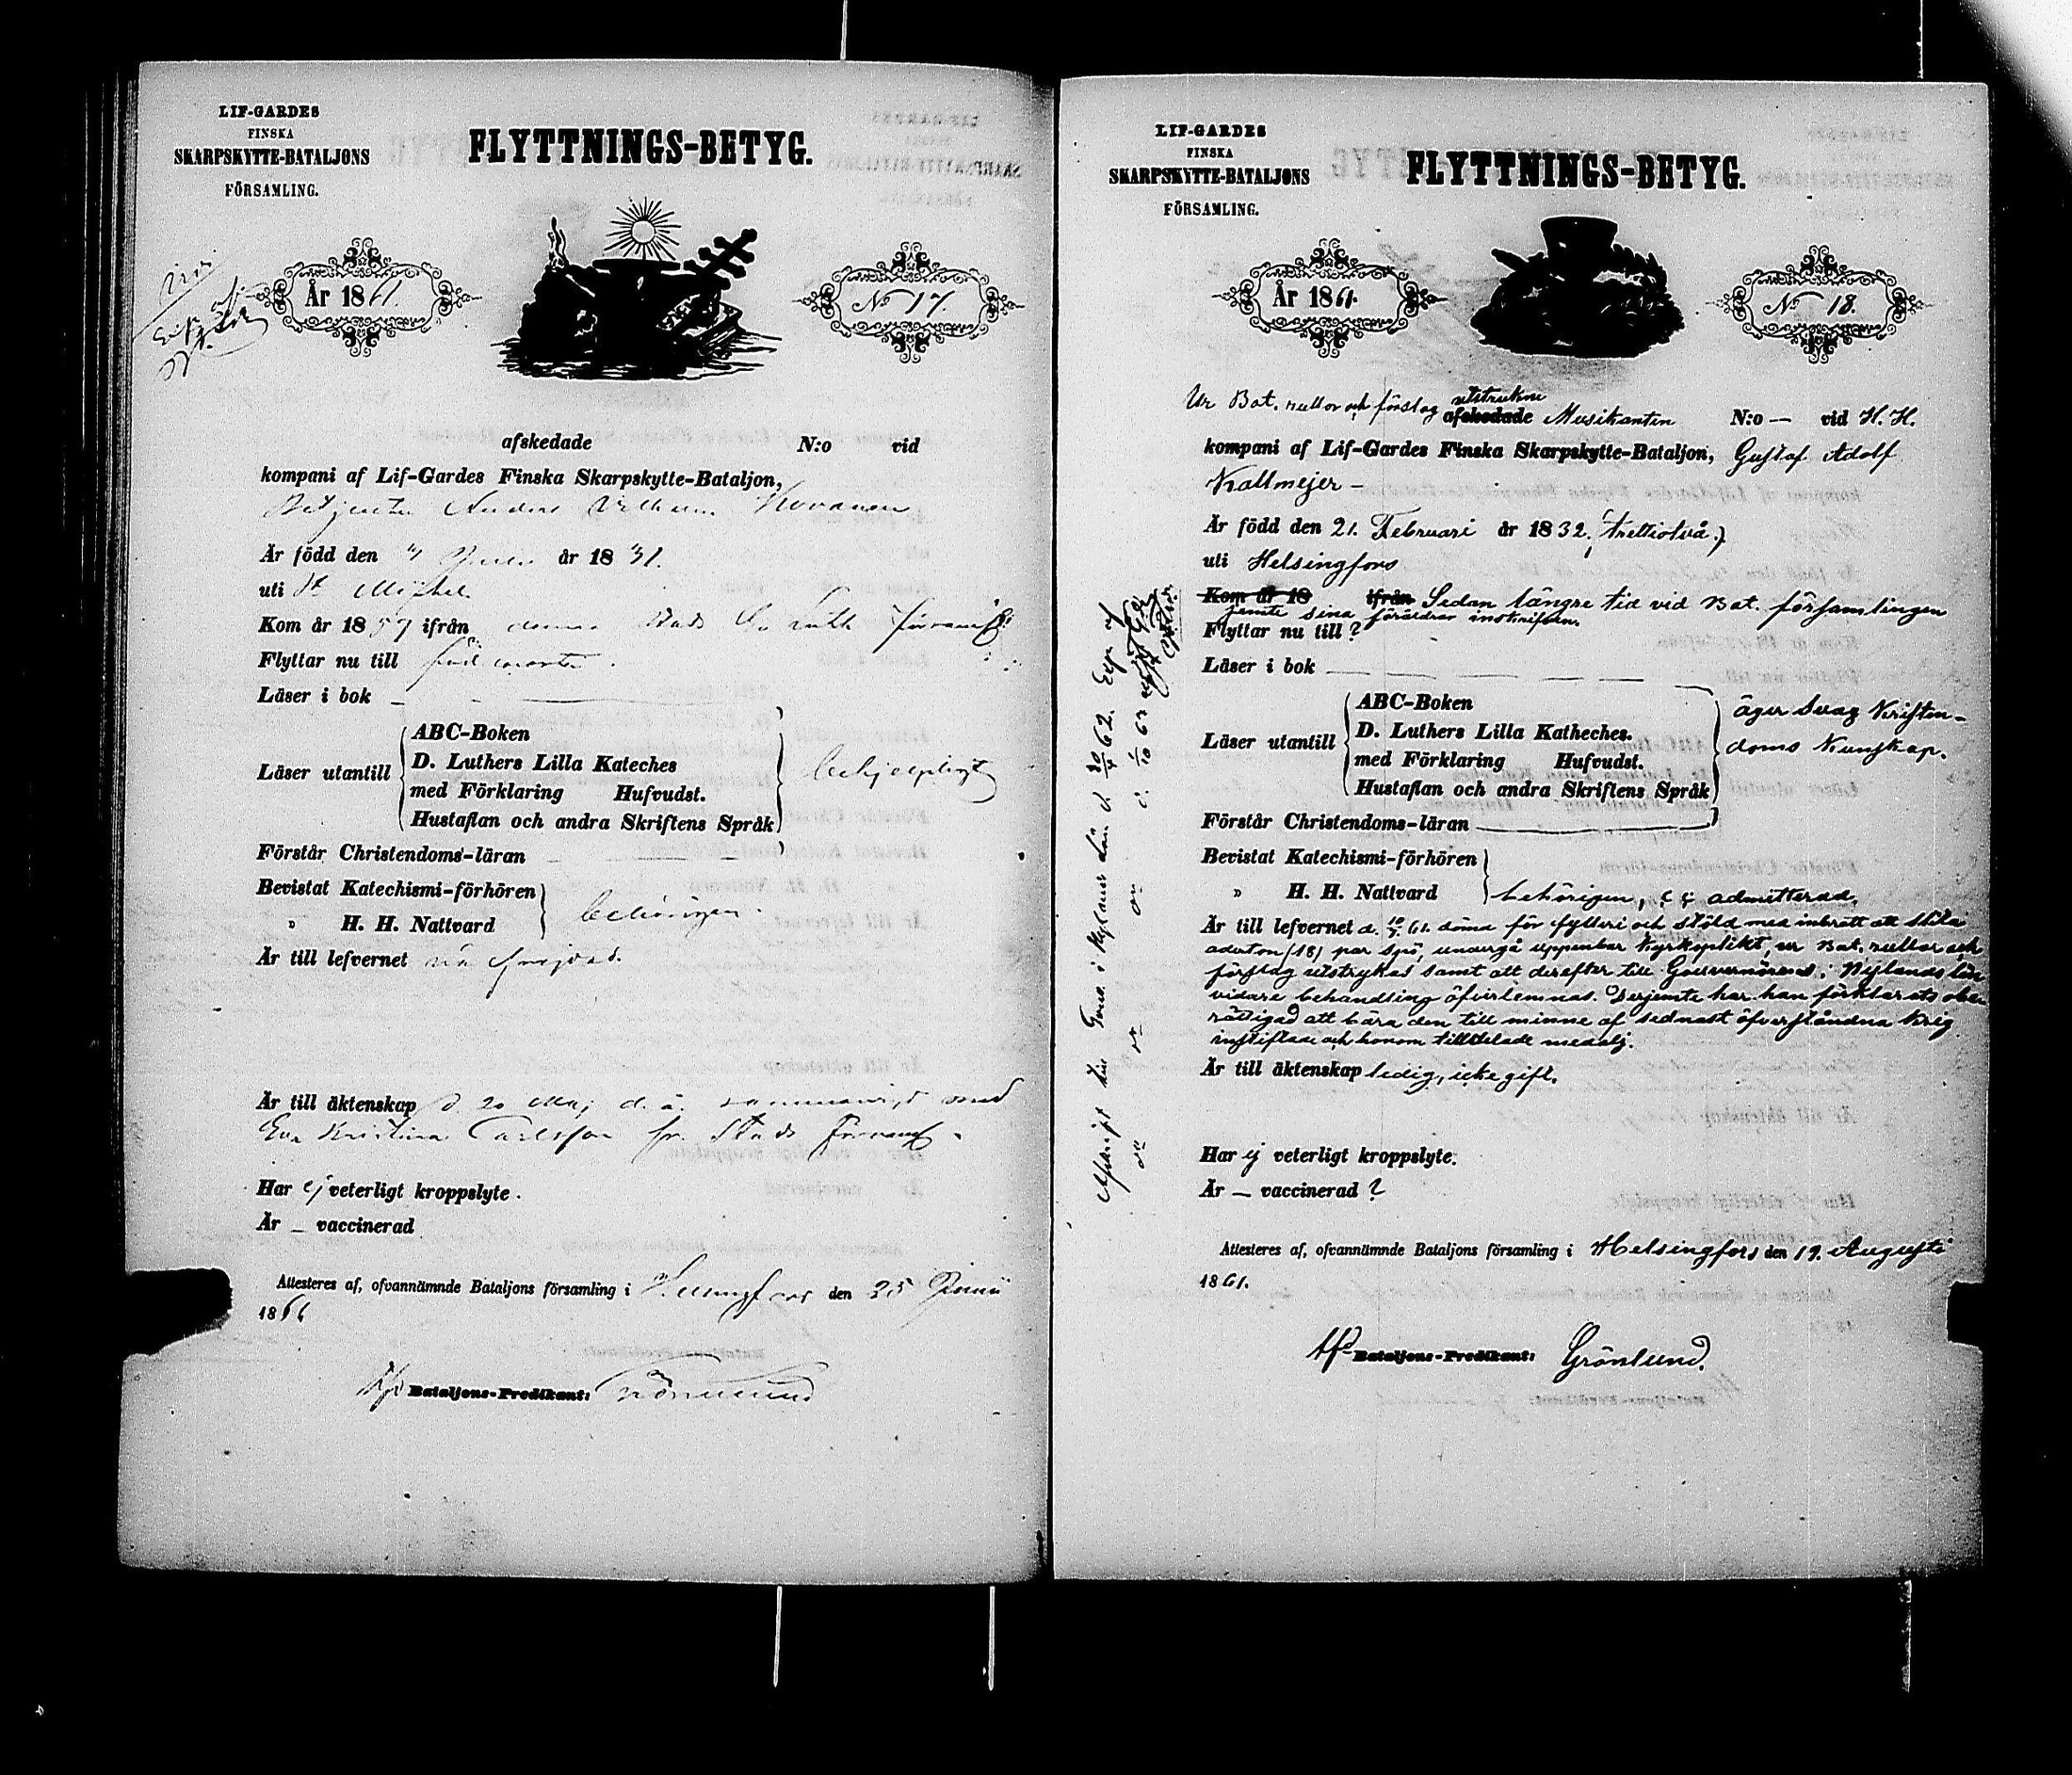 LIF-GARDES
FINSKA
SKARPSKYTTE-BATALJONS
FÖRSAMLING.
FLYTTNINGS-BETYG.
År 1861.
No 17.
afskedade N:o vid
kompani af Lif-Gardes Finska Skarpskytte-Bataljon,
Betjenten Anders Vilhelm
Är född den år 1831.
uti St Michel.
Kom år 1857 ifrån denna Stads Ev. Luth. församl.
Flyttar nu till
Läser i bok —
Läser utantill
ABC-Boken
D. Luthers Lilla Kateches
med Förklaring Hufvudst.
Hustaflan och andra Skriftens Språk
behjelpligt
Förstår Christendoms-läran —
Bevistat Katechismi-förhören
" H. H. Nattvard
behörigen.
Är till lefvernet
Är till äktenskap d. 20 Maj d. å. sammanvigd med
Eva Kristina Carlsson fr. Stads församl.
Har ej veterligt kroppslyte.
Är — vaccinerad
Attesteres af, ofvannämnde Bataljons församling i Helsingfors den 25 Junii
1861
Bataljons-Predikant: Grönlund
LIF-GARDES
FINSKA
SKARPSKYTTE-BATALJONS
FÖRSAMLING.
FLYTTNINGS-BETYG.
År 1861.
No 18.
Ur Bat. rullor och förslag utstrukne
afskedade Musikanten N:o — vid H. H.
kompani af Lif-Gardes Finska Skarpskytte-Bataljon, Gustaf Adolf
Kallmejer —
Är född den 21. Februari år 1832. (trettiotvå.)
uti Helsingfors
Kom år 18 ifrån Sedan längre tid vid Bat. församlingen
jemte sina föräldrar inskrifven.
Flyttar nu till ?
Läser i bok —
Läser utantill
ABC-Boken
D. Luthers Lilla Katheches.
med Förklaring Hufvudst.
Hustaflan och andra Skriftens Språk
äger svag Kristen-
doms Kunskap.
Förstår Christendoms-läran —
Bevistat Katechismi-förhören
" H. H. Nattvard
behörigen, admitterad.
Är till lefvernet d. 61. dömd för fylleri och stöld med inbrott att slita
aderton (18) par spö, undergå uppenbar Kyrkoplikt, ur Bat. rullor och
förslag utstrykas samt att derefter till Gouvernören i Nylands län
vidare behandling öfverlemnas. Derjemte har han förklarats obe-
rättigad att bära den till minne af sednast öfverståndna Krig
instiftade och honom tilldelade medalj.
Är till äktenskap ledig, icke gift.
Har ej veterligt kroppslyte.
Är — vaccinerad ?
Attesteres af, ofvannämnde Bataljons församling i Helsingfors den 19. Augusti
1861.
Bataljons-Predikant: Grönlund.
Afskrift till Guvn. i Nylands län d. 62.